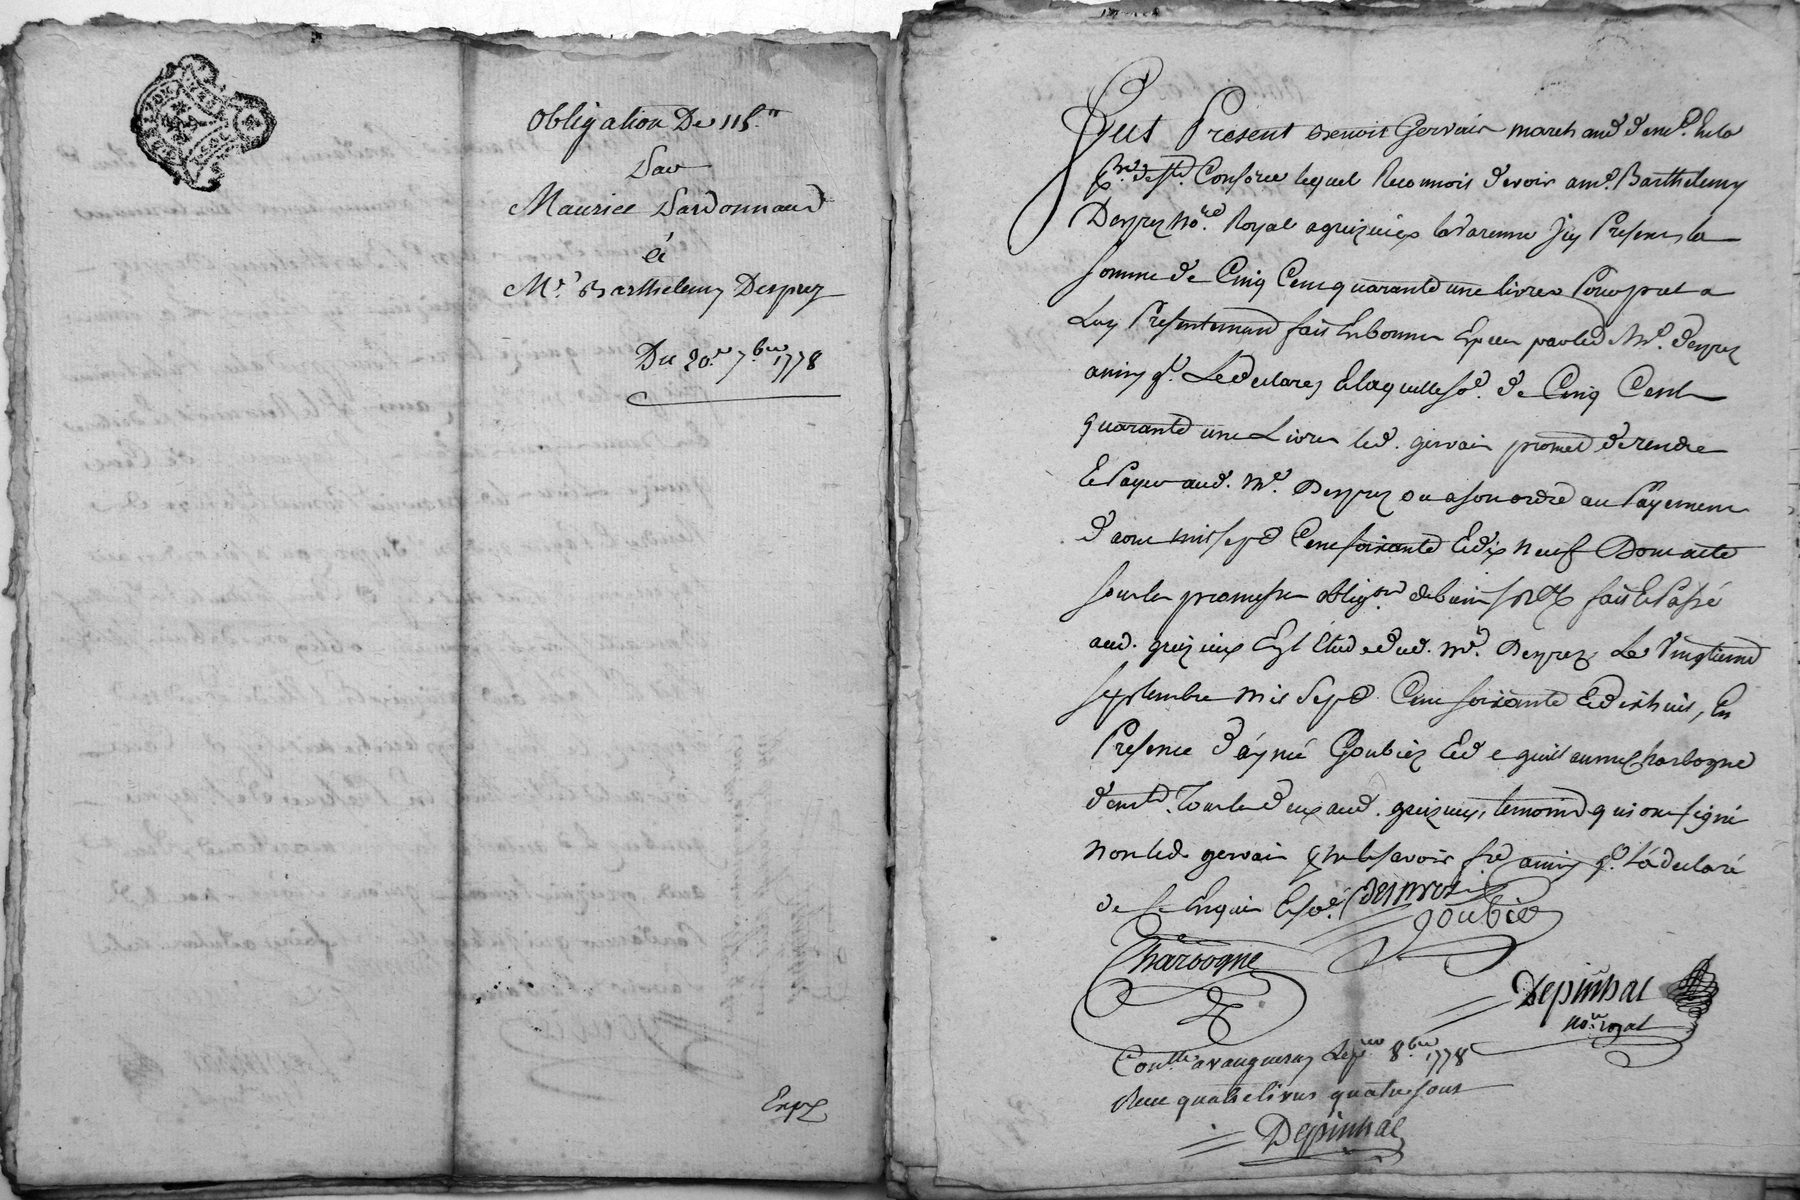 obligation De 115.ᵗᵗ
Par
Maurice Pardonnaud
à
Mʳ. Barthelemy Desprez
Du 20.ᵉ 7.ᵇʳᵉ 1778
Expᵉ
Fut Présent Benoit Gervais marchand demᵗ.
Sᵗ. Conforce lequel Reconnoit devoir a mᵉ. Barthelemy
Desprez Noʳᵉ. Royal a grizieux la Varenne Icy Present la
somme de Cinq Cent quarante une livres Pour pret a
Luy Presentement fait En bonnes Especes par led. Mᵉ. desprez
ainsy qᵉ. Le declarez Et laquelle soᵉ. de Cinq Cent
quarante une Livres led. gervais promet de rendre
Et Payer aud. Mᵉ. Desprez ou a son ordre au Payement
d'aout mil sept Cent soixante Et dix neuf Dont acte
sous les promesses obligᵒⁿˢ fait Et Passé
aud. grizieux Ez Etude dud. Mᵉ. Desprez Le Vingtieme
septembre mil Sept Cent soixante Et dix huit, En
Presence d'aymé Goubiez Et de guillaume Charbogne
tous les deux aud. grizieux, temoins qui ont signé
non led. gervais pʳ ne le savoir fʳᵉ ainsy qᵉ. l'a declaré
de ce Enquis Et soᵉ. Desprez
goubiez
Charbogne
Depinhac
noʳᵉ royal
Conᵗˡˡᵉ a vaugneray Le pʳᵉᵐⁱᵉʳ 8.ᵇʳᵉ 1778
Reçu quatre livres quatre sous
Depinhac